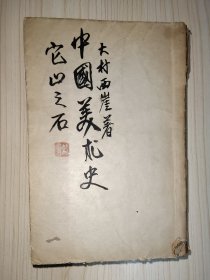 大村西崖著
中國美术史
它山之石
一